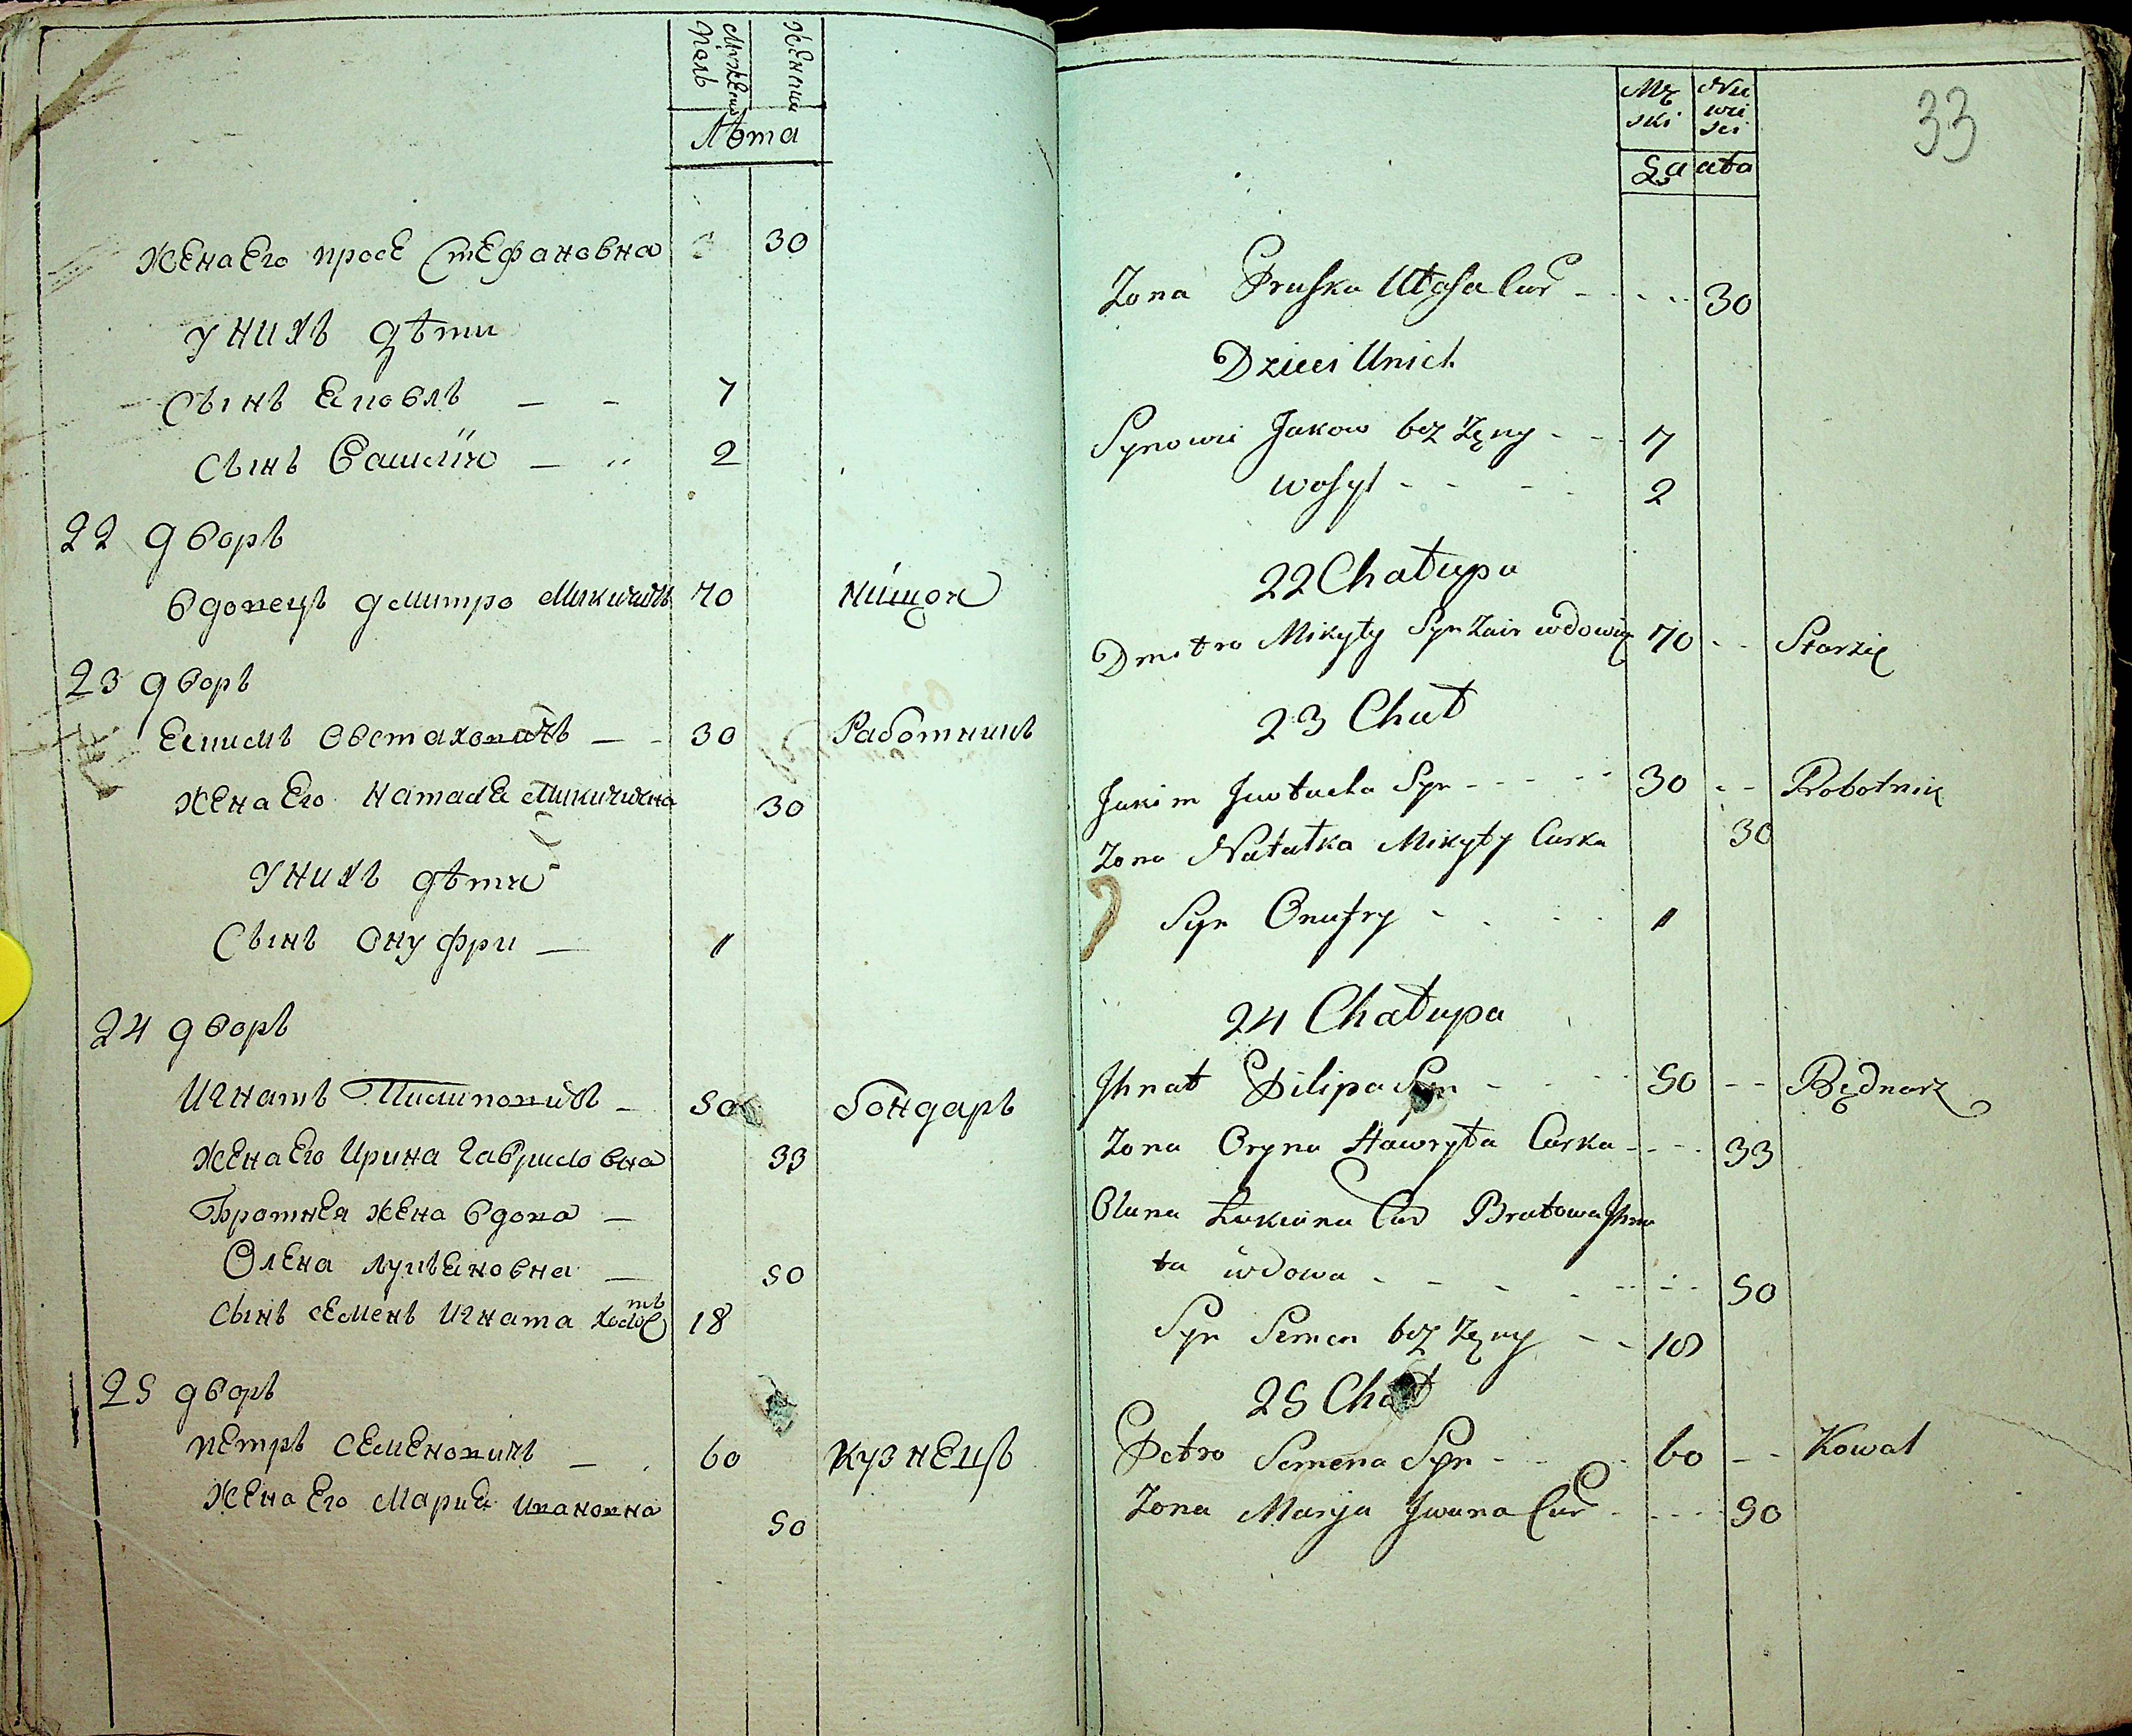 Мужеской полъ
Женски
Лѣта
жена его просе Стефановна 30
у нихъ дѣти
Сынъ Яковлъ — - 7
сынъ Василію — 2
22 дворъ
вдовецъ дмитро Микичинъ 70 Нищои
23 дворъ
Екимъ Овстаховичъ — - 30 Работникъ
жена его Наталя Микичина 30
у нихъ дѣти
Сынъ Онуфри — 1
24 дворъ
Игнатъ Пилиповичъ - 50 бондаръ
жена его Ирина Гавриловна 33
Братнея жена вдова —
Олена лукъяновна — 50
сынъ семенъ Игната холостъ 18
25 дворъ
петръ семеновичъ — . 60 кузнецъ
жена его Мария ивановна 50
33
Męski
Niewieści
Laata
Zona Pruska Cur - - - - 30
Dzieci Unich
Synowie Jakow bez Zęny - - 7
Wasyl - - - 2
22 Chałupa
Dmitro Mikyty Syn Zais wdowiec 70 - - Starzić
23 Chał
Jakim Jwstacha Syn - - - - 30 - - Robotnik
Zona Natałka Mikyty Curka 30
Syn Onufry - - - 1
24 Chałupa
Jhnat Pilipa Syn - - - 50 - - Będnarz
Zona Oryna Hawryła Curka - - - 33
Olana Łukiana Cur Bratowa Jhna
ta wdowa - - - - - 50
Syn Semen bez Zęny - - 18
25 Chał
Petro Semena Syn - - 60 - - Kowal
Zona Marija Jwana Cur - - - 50